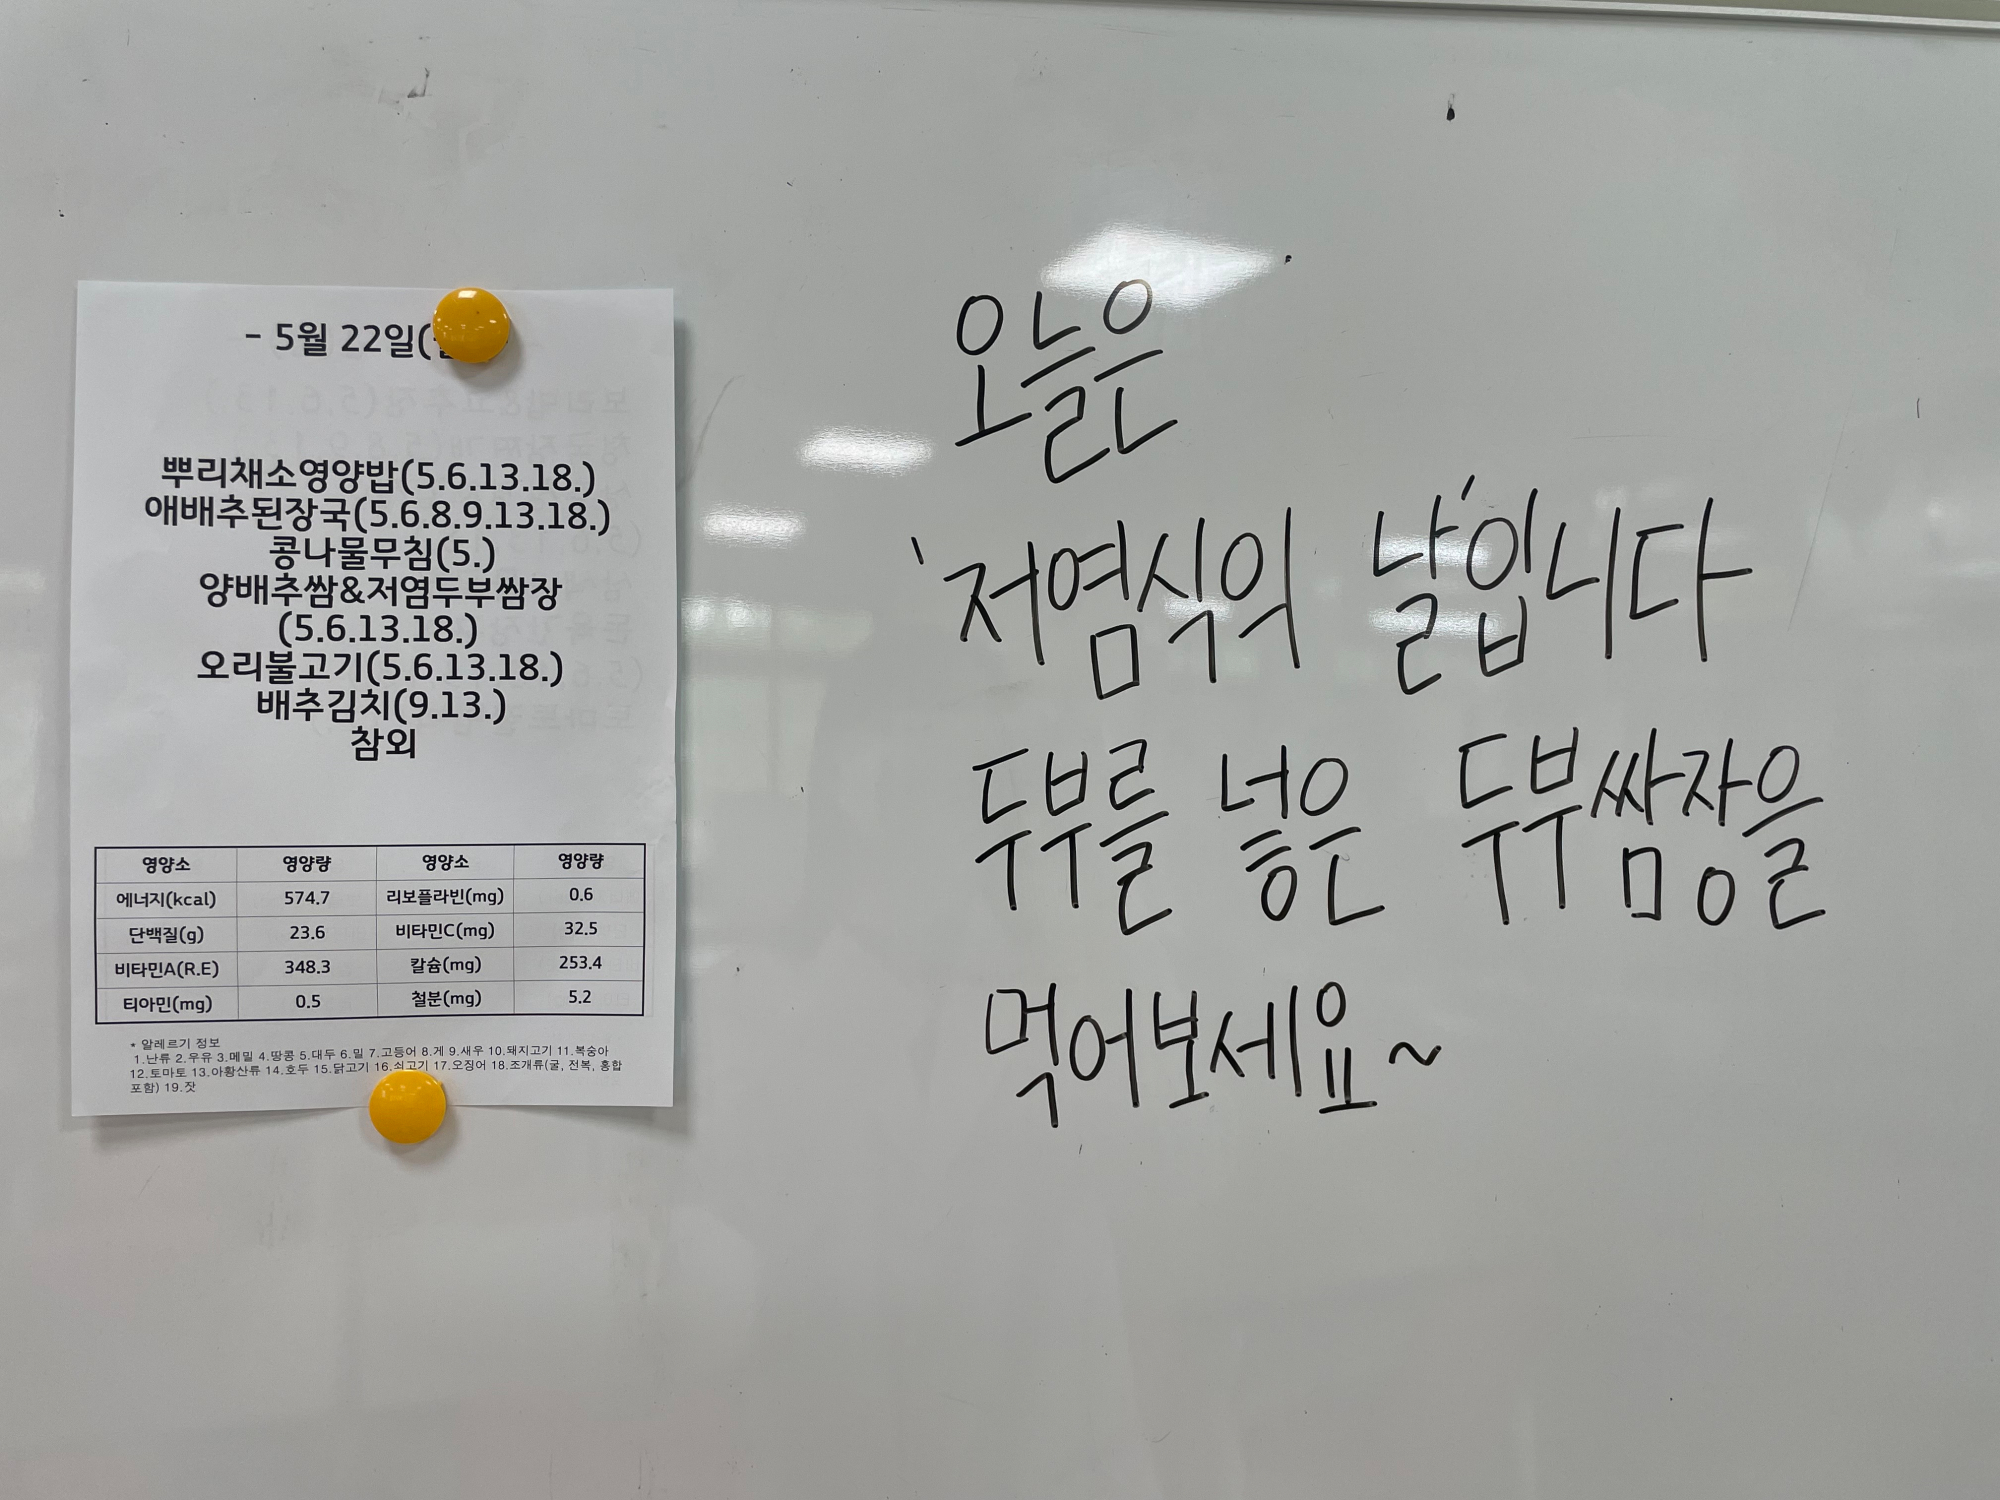 - 5월 22일(
뿌리채소영양밥(5.6.13.18.)
애배추된장국(5.6.8.9.13.18.)
콩나물무침(5.)
양배추쌈&저염두부쌈장
(5.6.13.18.)
오리불고기(5.6.13.18.)
배추김치(9.13.)
참외
영양소 영양량 영양소 영양량
에너지(kcal) 574.7 리보플라빈(mg) 0.6
단백질(g) 23.6 비타민C(mg) 32.5
비타민A(R.E) 348.3 칼슘(mg) 253.4
티아민(mg) 0.5 철분(mg) 5.2
* 알레르기 정보
1.난류 2.우유 3.메밀 4.땅콩 5.대두 6.밀 7.고등어 8.게 9.새우 10.돼지고기 11.복숭아
12.토마토 13.아황산류 14.호두 15.닭고기 16.쇠고기 17.오징어 18.조개류(굴, 전복, 홍합
포함) 19.잣
오늘은
'저염식의 날'입니다
두부를 넣은 두부쌈장을
먹어보세요~